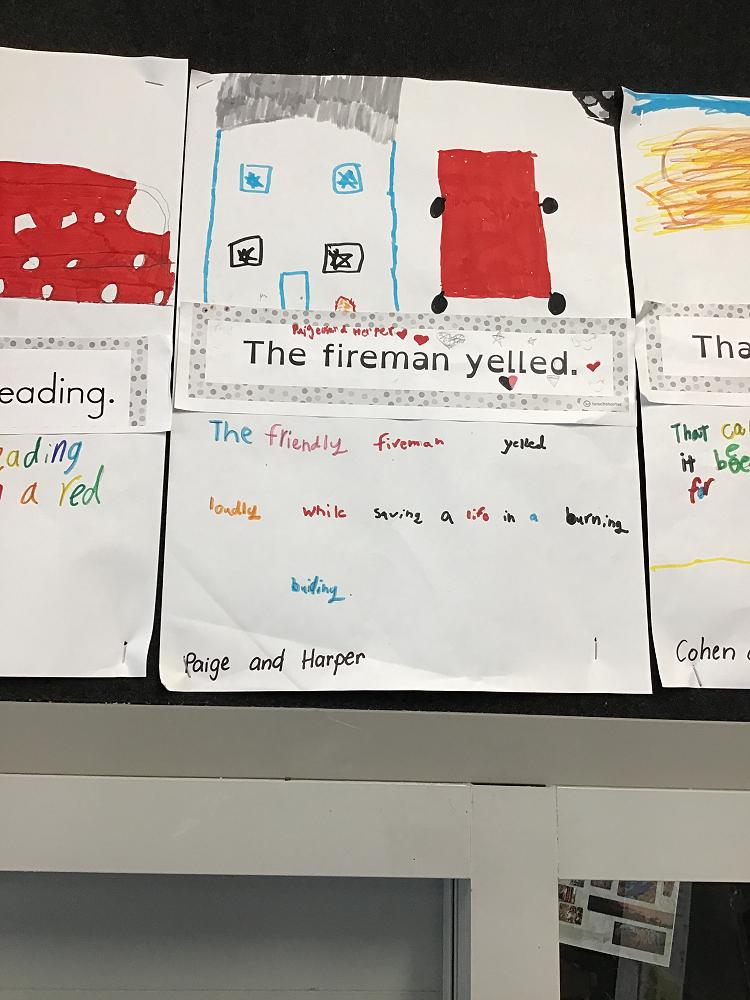 eading.
eading
a red
Paige and Harper
The fireman yelled.
The friendly fireman yelled
loudly while saving a life in a burning
building.
Paige and Harper
Tha
That ca
it bee
for
Cohen